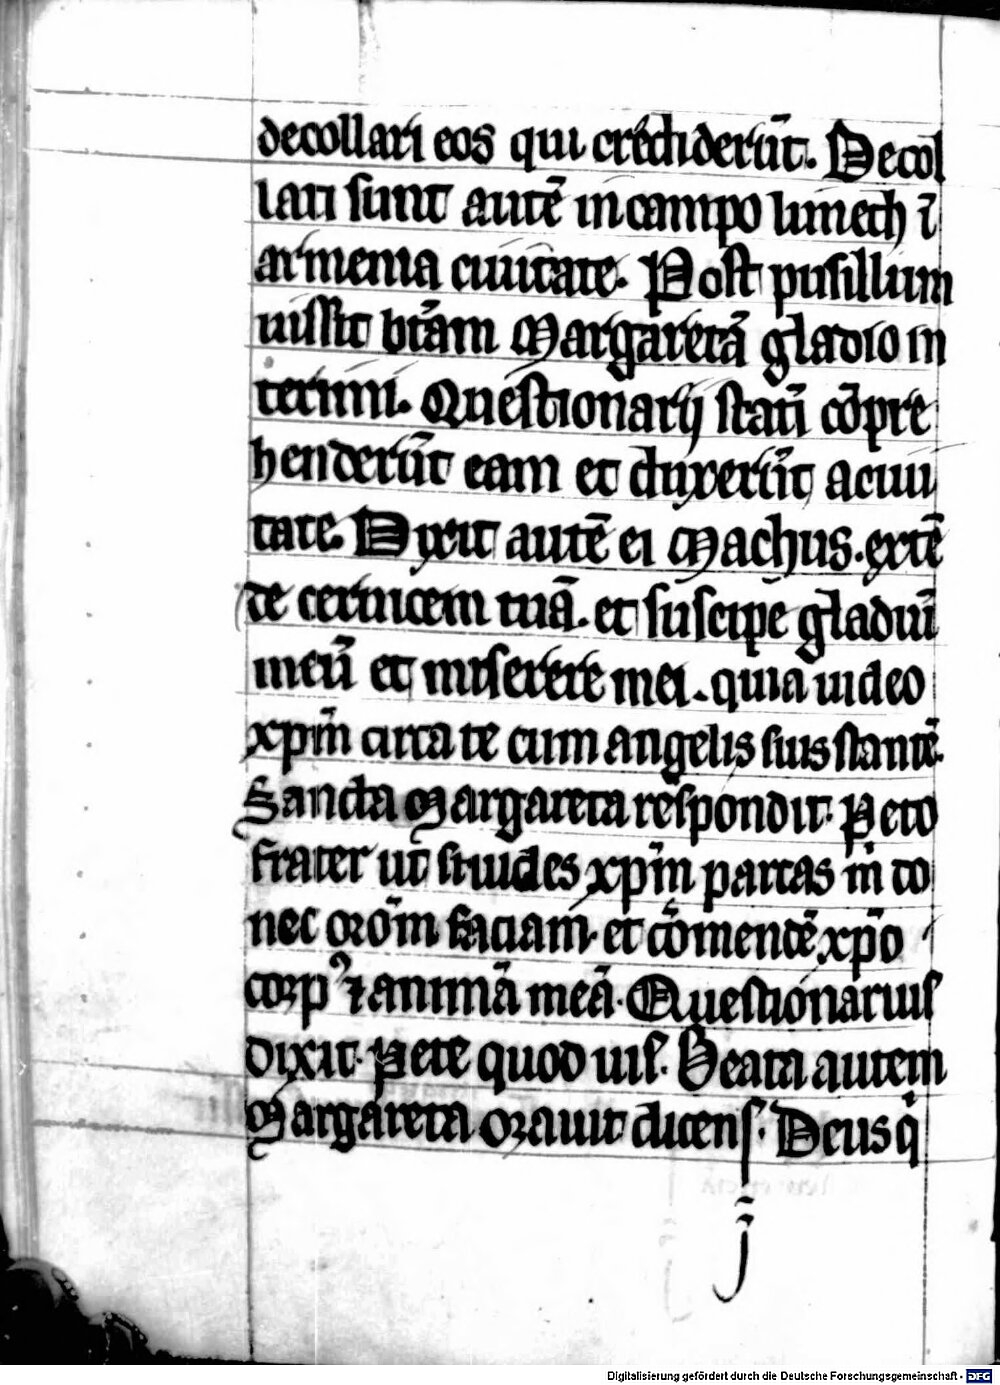 decollari eos qui crediderūt. Decol
lati sunt autē in campo limech ī
armenia ciuitate. Post pusillum
iussit btām Margaretā gladio in
terimi. Questionarij stati cōpre
henderūt eam et duxerūt a ciui
tate. Dixit autē ei Machus. extē
de ceruicem tuā. et suscipe gladiū
meū et miserere mei. quia uideo
xpm̄ circa te cum angelis suis stantē.
Sancta Margareta respondit. Peto
frater ut si uides xpm̄ parcas m do
nec orōm faciam. et cōmendē xpō
corpꝰ ⁊ animā meā. Questionarius
dixit. Pete quod uis. Beata autem
Margareta orauit dicens. Deus q̇
j̄
Digitalisierung gefördert durch die Deutsche Forschungsgemeinschaft - DFG